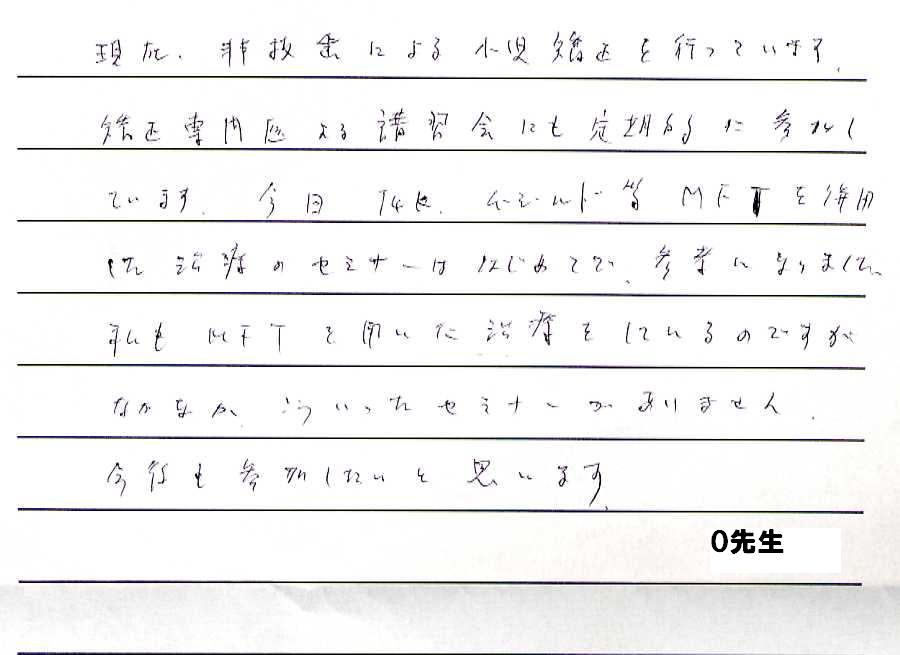 現在、非抜歯による小児矯正を行っています。
矯正専門医よる講習会にも定期的に参加し
ています。今回 ムーシールド等MFTを併用
した治療のセミナーははじめてで、参考になりました。
私もMFTを用いた治療をしているのですが
なかなか、こういったセミナーがありません。
今後も参加したいと思います。
O先生